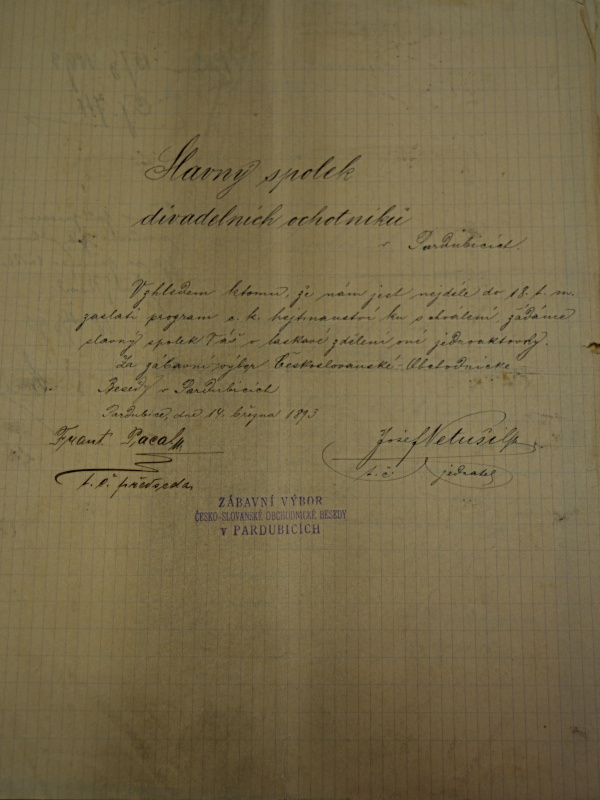 Slavný spolek
divadelních ochotníků
v Pardubicích.
Vzhledem k tomu, že nám jest nejdéle do 18. t. m.
zaslati program c. k. hejtmanství ku schválení, žádáme
slavný spolek Váš o laskavé zdělení oné jednoaktovky.
Za zábavní výbor Českoslovanské Obchodnické
Besedy v Pardubicích
Pardubice, dne 14. března 1893
Frant. Pacal Josef Netušil
t. č. předseda t. č. jednatel
ZÁBAVNÍ VÝBOR
ČESKO-SLOVANSKÉ OBCHODNICKÉ BESEDY
V PARDUBICÍCH